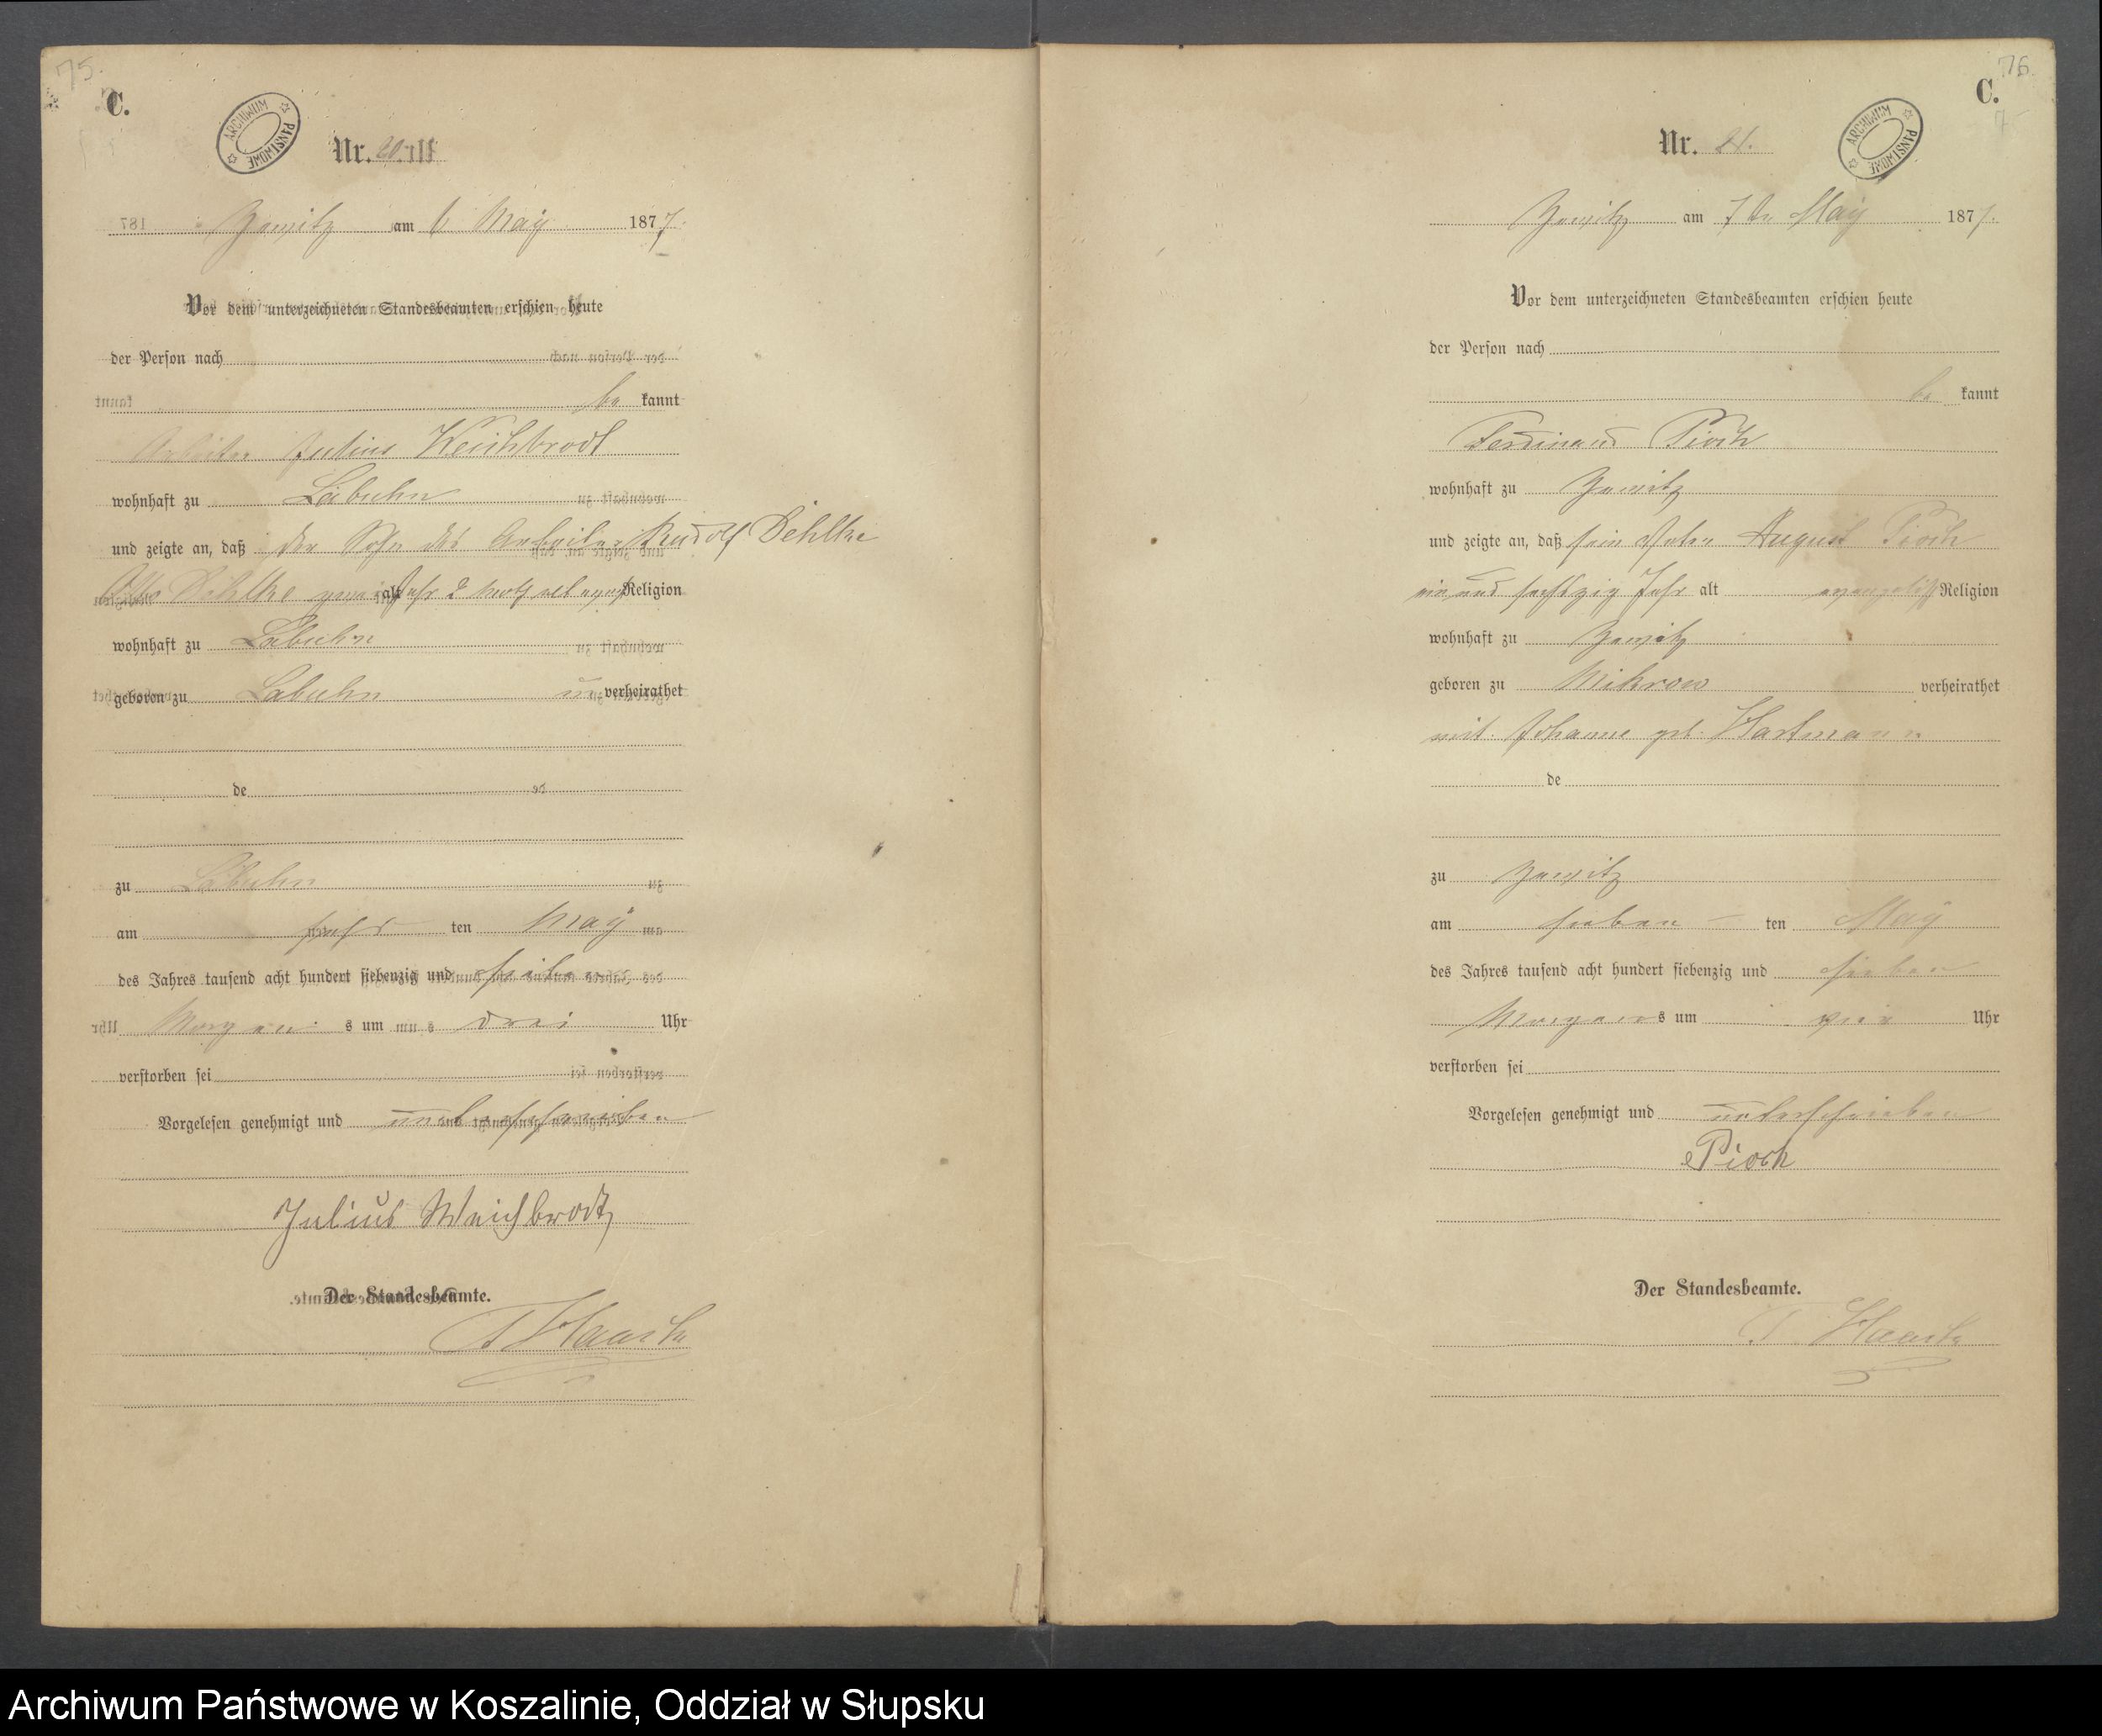 75.
C.
ARCHIWUM PAŃSTWOWE
Nr. 20.
Zewitz am 6 May 1877.
Vor dem unterzeichneten Standesbeamten erschien heute
der Person nach
be kannt
Arbeiter Julius Weichbrodt
wohnhaft zu Labuhn
und zeigte an, daß der Sohn des Arbeiter Rudolf Dehlke
Otto Dehlke alt Jahr 2 Religion
wohnhaft zu Labuhn
geboren zu Labuhn un verheirathet
de
zu Labuhn
am sechs ten May
des Jahres tausend acht hundert siebenzig und sieben
Morgen s um drei Uhr
verstorben sei
Vorgelesen genehmigt und unterschrieben
Julius Weichbrodt
Der Standesbeamte.
Haack
76.
C.
ARCHIWUM PAŃSTWOWE
Nr. 21.
Zewitz am 7 te May 1877.
Vor dem unterzeichneten Standesbeamten erschien heute
der Person nach
be kannt
Ferdinand Pioch
wohnhaft zu Zewitz
und zeigte an, daß sein Vater August Pioch
ein und sechszig Jahr alt evangelisch Religion
wohnhaft zu Zewitz
geboren zu Mikrow verheirathet
mit Johanne geb. Hartmann
de
zu Zewitz
am sieben ten May
des Jahres tausend acht hundert siebenzig und sieben
Morgens um vier Uhr
verstorben sei
Vorgelesen genehmigt und unterschrieben
Pioch
Der Standesbeamte.
Haack
Archiwum Państwowe w Koszalinie, Oddział w Słupsku